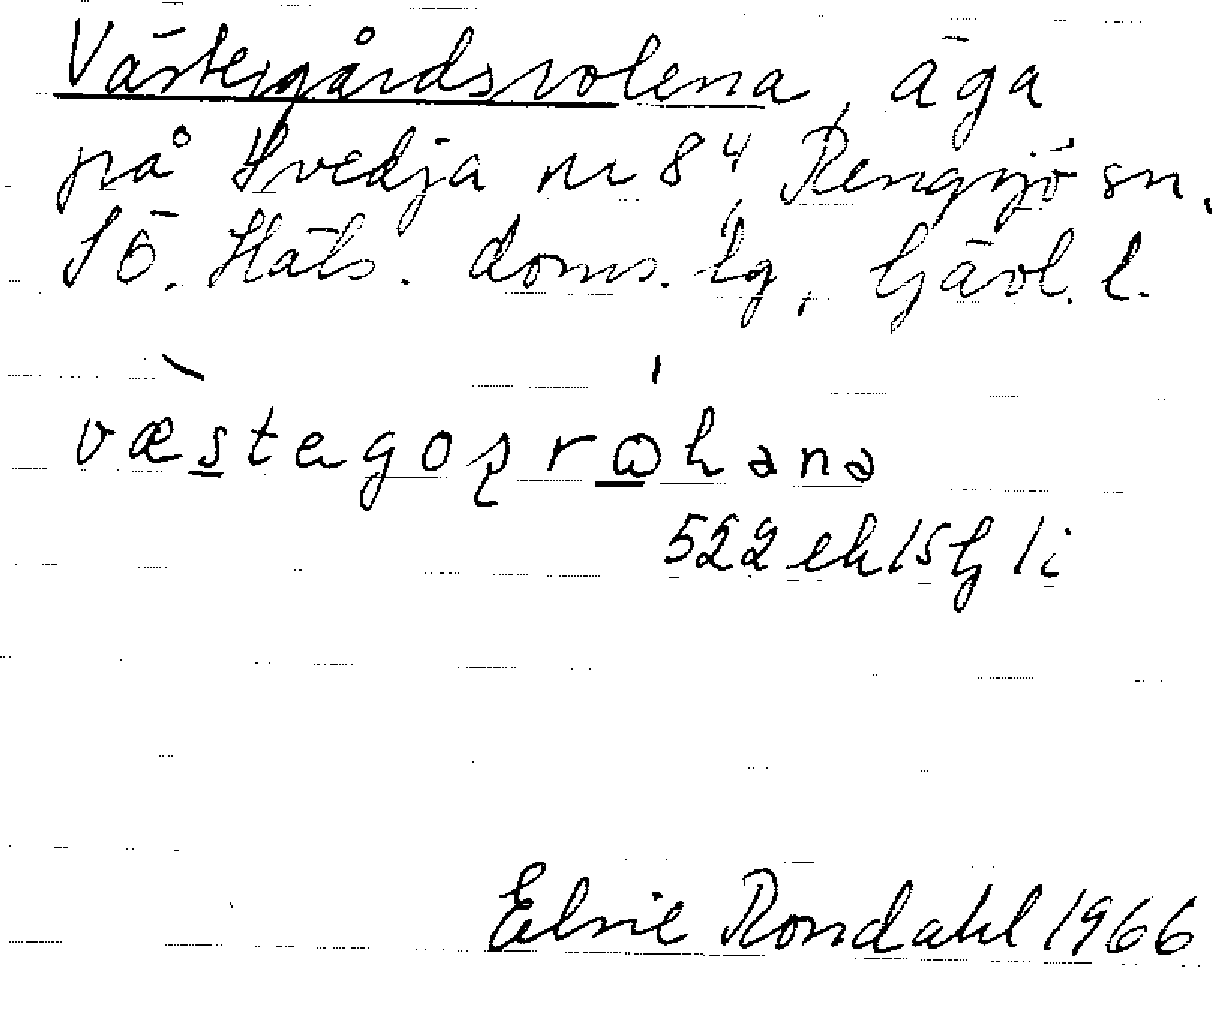 Västergårdsrolena, äga
på Hvedja nr 8⁴ Rengsjö sn.
Sö. Häls. doms. lg, Gävl. l.
væstegoşrωhana
522 ek 15 G 1 i
Elsie Rondahl 1966